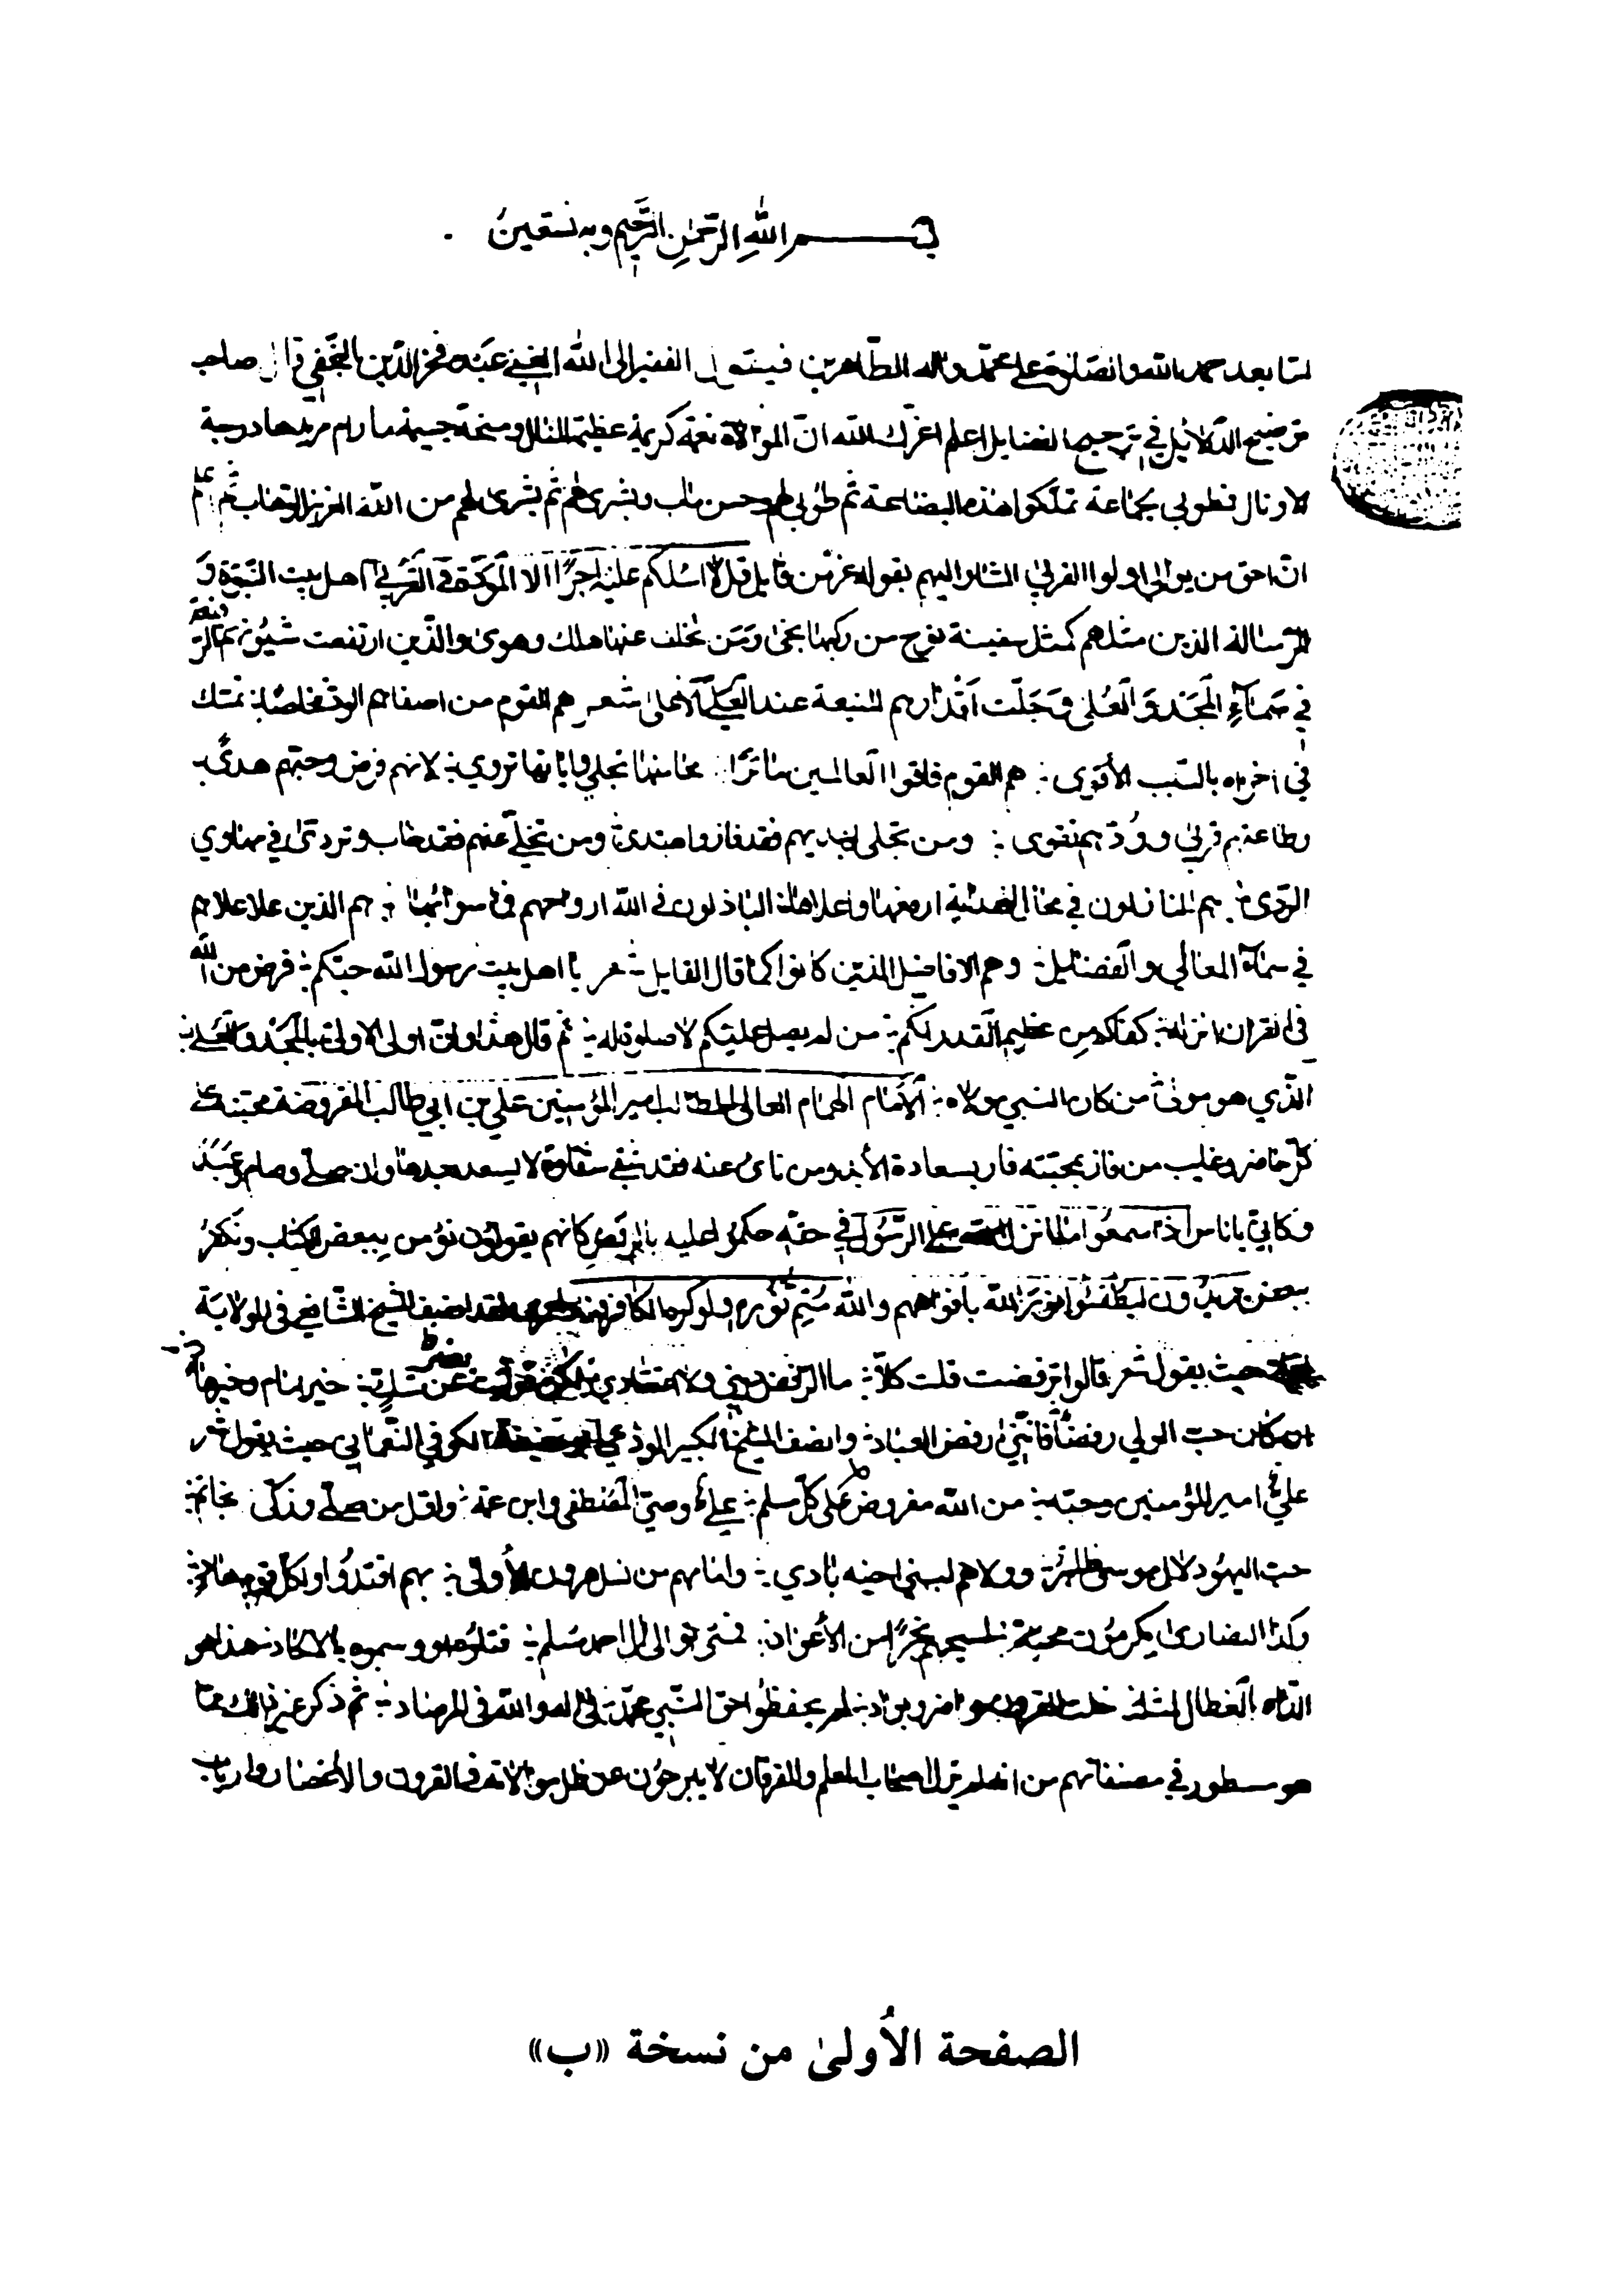 بسم اللهِ الرّحمٰنِ الرَّحيم وبه نستعينُ
امّا بعد حمد الله والصّلوة على محمّد واله الطّاهرين فيقول الفقير الى الله الغني عبده فخر الدّين النّجفي قال صاحب
توضيح الدّلائل في ترجيح الفضايل اعلم اعزّك الله انّ الموالاة نعمة كريمة عظيمة المنال ومنحة جسيمة ما رام مريدها درجة
الا ونال فطوبى لجماعة تملّكوا هذه البضاعة ثم طوبى لهم وحسن ماب وبشرى لهم ثم بشرى لهم من الله العزيز الوهاب ثم اعلم
انّ احق من يوالى اولوا القربى المشار اليهم بقوله عزّ من قايل قل لا اسئلكم عليه اجرًا الا المودّة في القربى اهل بيت النّبوّة و
الرّسالة الذين مثلهم كمثل سفينة نوح من ركبها نجى ومَن تخلف عنها هلك وهوى والّذين ارتفعت شئونهم
في سَماءِ المجَد وَالعُلى وجَلّت اقدارهم المنيعة عند العَليّ الاعلى شعر هم القوم من اصفاهم الودّ مخلصًا تمسّك
في اخراه بالسّبب الأقوى هم القوم فاقوا العالمين ماثرًا محاسنها تجلى واياتها تروى لانهم فرض وحبّهم هدىً
وطاعتهم قربى وودّهم تقوى ومن تجلى بهديهم فقد فاز واهتدى ومن تخلّى عنهم فقد خاب وتردّى في مهاوي
الرّدى هم النازلون في محالّ ارفعها واعلاها الباذلون في الله ارواحهم هم الذين علا اعلامهم
في سماء المعالي والفضائل وهم الافاضل الّذين كانوا كما قال القايل شعر يا اهل بيت رسول الله حبّكم فرض من الله
في القران انزله كفاكم من عظيم القدر انكم من لم يصل عليكم لا صلوة له ثم قال هذا وانّ اولى الاولى بالمجد والعلى
الّذي هو مولى من كان النبي مولاه الأمام الهمام العالي امير المؤمنين علي بن ابي طالب المفروضة محبّته على
كلّ حاضر وغايب من فاز بمحبّته فاز بسعادة الأبد ومن نأى عنه فقد شقى شقاوة لا يسعد بعدها وان صلّى وصام وعبَدَ
وكانّي باناس اذا سمعوا ما انزل الله على الرّسول في حقّه حكموا عليه بالرفض كانهم يقولون نؤمن ببعض الكتاب ونكفرُ
ببعض يريدون ليطفئوا نورَ الله بافواههم والله مُتِمّ نورهِ ولو كره الكافرون ولقد انصف الشيخ الشّافعي في الولاية
حيث يقول شعر قالوا ترفضت قلت كلاّ ما الرّفض ديني ولا اعتقادي لكن تولّيت غير شكّ خير امام وخير هادٍ
ان كان حبّ الولي رفضًا فانّني ارفض العباد وانصف الشيخ الكبير ابو حنيفة الكوفي النّعماني حيث يقول شعر
عليٌّ امير المؤمنين وحبّه من الله مفروض على كلّ مسلم عليٌّ وصيّ المصطفى وابن عمّه واوّل من صلّى وزكّى بخاتم
حبّ اليهود لال موسى ظاهرٌ وولاهم لبني اخيه بادي وامامهم من نسل هرون الأولى بهم اقتدوا ولكلّ قوم هادٍ
وكذا النصارى يكرمون محبّة لمسيحهم نجرًا من الأعواد فمتى توالى ال احمد مسلم قتلوه او وسموه بالالحاد هذا هو
الدّاء العضال لمثله لم يحفظوا حق النّبي محمّد في اله والله في المرصاد ثم ذكر غير ذلك ممّا
هو مسطور في مصنفاتهم من انه لم يزل اصحاب العلم والعرفان لا يبرحون عن ظل موالاته في القرون والاعصار وارباب
الصفحة الأولىٰ من نسخة «ب»